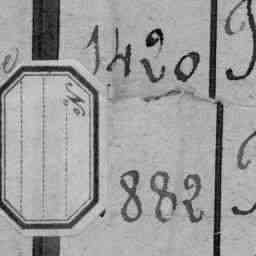 1420
No
882